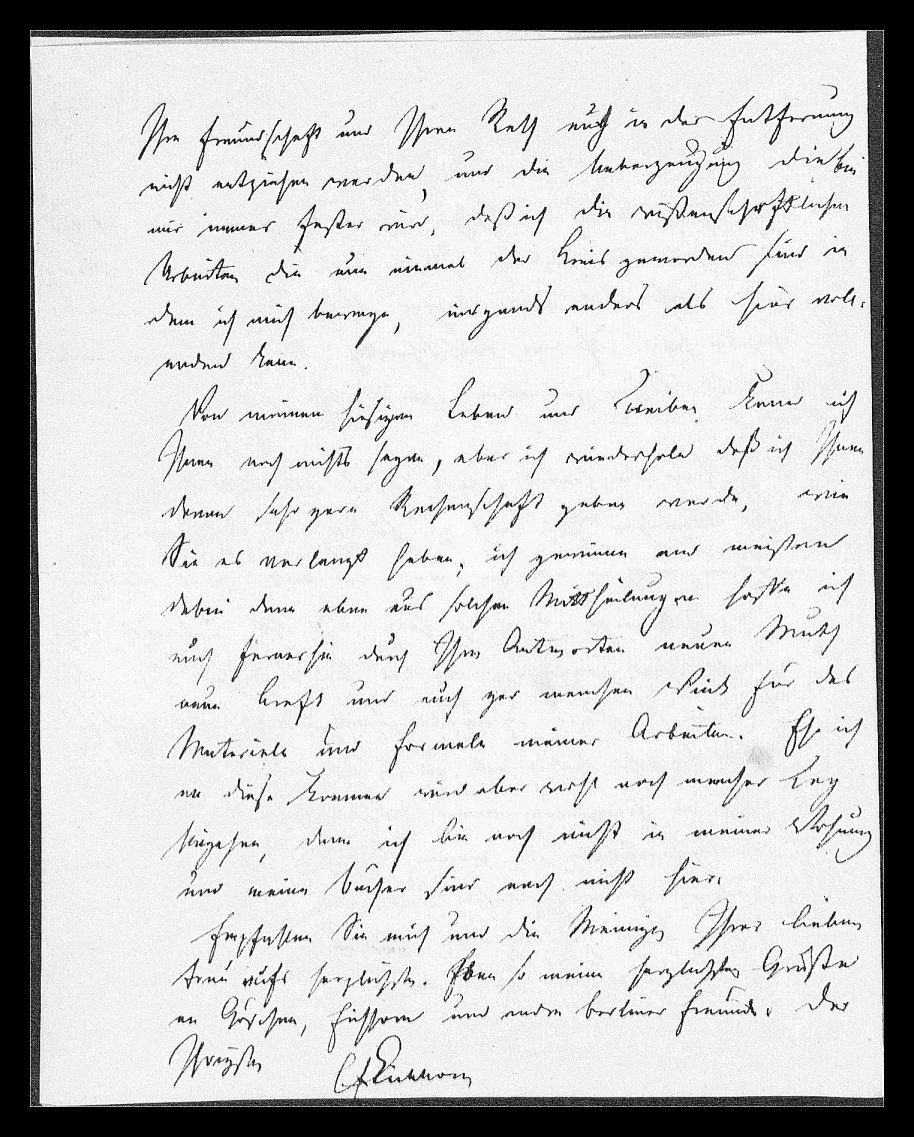 Ihre Freundschaft und Ihren Rath auch in der Entfernung
nicht entziehen werden, und die Ueberzeugung die bei
mir immer fester wird, daß ich die wißenschaftlichen
Arbeiten die nun einmal der Kreis geworden sind in
dem ich mich bewege, nirgends anders als hier voll-
enden kann.
Von meinem hiesigen Leben und Treiben kann ich
Ihnen noch nichts sagen, aber ich wiederhole daß ich Ihnen
davon sehr gern Rechenschaft geben werde, wie
Sie es verlangt haben; ich gewinne am meisten
dabei denn eben aus solchen Mittheilungen hoffe ich
auch fernerhin durch Ihre Antworten neuen Muth
neue Kraft und auch gar manchen Wink für das
Materielle und Formele meiner Arbeiten. Ehe ich
an diese komme wird aber wohl noch mancher Tag
hingehen, denn ich bin noch nicht in meiner Wohnung
und meine Bücher sind noch nicht hier.
Empfehlen Sie mich und die Meinigen Ihrer lieben
Frau aufs herzlichste. Eben so meine herzlichsten Grüße
an Göschen, Eichhorn und andre berliner Freunde. Der
Ihrigste
CFEichhorn